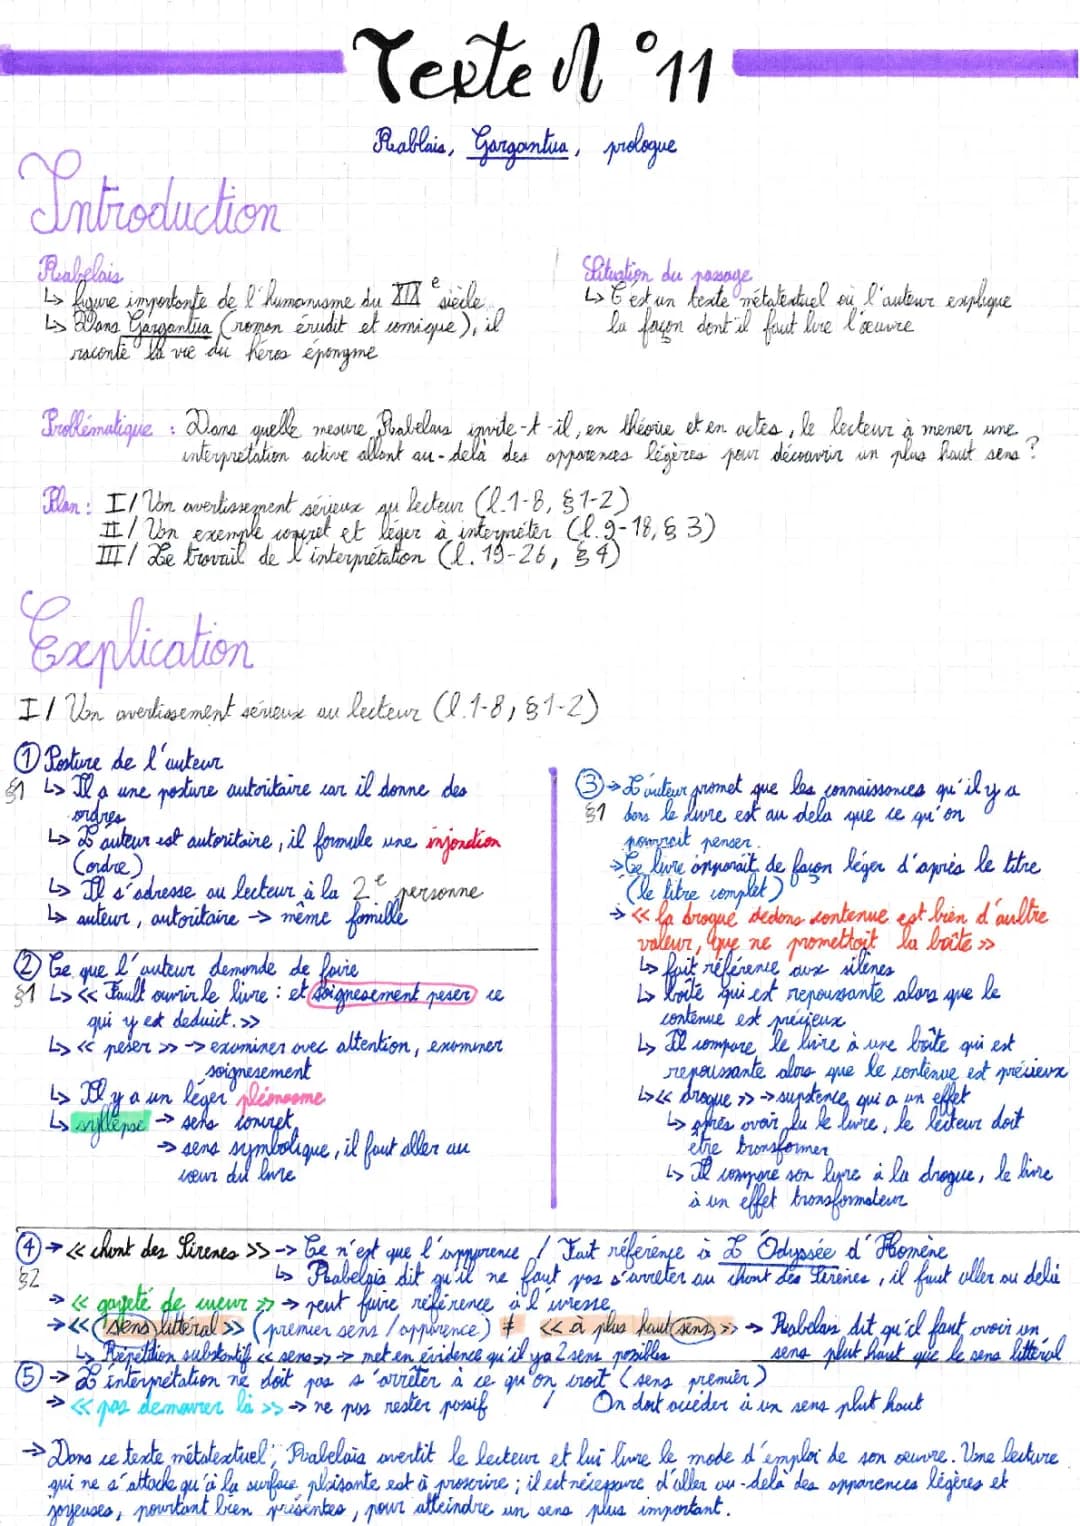 Texte N°11
Rablais, Gargantua, prologue
Introduction
Rabelais
↳ figure importante de l'humanisme du XVIe siècle
↳ Dans Gargantua (roman érudit et comique), il
raconte la vie du héros éponyme
Situation du passage
↳ C'est un texte métatextuel où l'auteur explique
la façon dont il faut lire l'œuvre
Problématique : Dans quelle mesure Rabelais invite-t-il, en théorie et en actes, le lecteur à mener une
interprétation active allant au-delà des apparences légères pour découvrir un plus haut sens ?
Plan : I/ Un avertissement sérieux au lecteur (l.1-8, §1-2)
II/ Un exemple concret et léger à interpréter (l.9-18, § 3)
III/ Le travail de l'interprétation (l. 19-26, § 4)
Explication
I/ Un avertissement sérieux au lecteur (l.1-8, §1-2)
① Posture de l'auteur
§1 ↳ Il a une posture autoritaire car il donne des
ordres
↳ L'auteur est autoritaire, il formule une injonction
(ordre)
↳ Il s'adresse au lecteur à la 2e personne
↳ auteur, autoritaire → même famille
② Ce que l'auteur demande de faire
§1 ↳ << Fault ouvrir le livre : et soignesement peser ce
qui y est deduict. >>
↳ << peser >> → examiner avec attention, examiner
soignesement
↳ Il y a un léger pléonasme
↳ syllepse → sens concret
→ sens symbolique, il faut aller au
cœur du livre
③ → L'auteur promet que les connaissances qu'il y a
§1 dans le livre est au dela que ce qu'on
pourrait penser.
→ Ce livre apparait de façon léger d'après le titre
(le titre complet)
→ << la drogue dedans contenue est bien d'aultre
valeur, que ne promettoit la boîte >>
↳ fait référence aux silènes
↳ boîte qui est repoussante alors que le
contenue est précieux
↳ Il compare le livre à une boîte qui est
repoussante alors que le contenue est précieux
↳ << drogue >> → substence qui a un effet
↳ après avoir lu le livre, le lecteur doit
être transformer
↳ Il compare son livre à la drogue, le livre
à un effet transformateur
④ → << chant des Sirenes >> → Ce n'est que l'apparence / Fait référence à L'Odyssée d'Homère
§2 ↳ Rabelais dit qu'il ne faut pas s'arrêter au chant des sirènes, il faut aller au delà
→ << gayeté de cueur >> → peut faire référence à l'ivresse
→ << sens littéral >> (premier sens / apparence) ≠ << à plus haut sens >> → Rabelais dit qu'il faut avoir un
↳ Répétition substantif << sens >> → met en évidence qu'il y a 2 sens possibles sens plut haut que le sens littéral
⑤ → L'interprétation ne doit pas s'arrêter à ce qu'on croit (sens premier)
→ << pas demourer là >> → ne pas rester passif / On doit accéder à un sens plut haut
→ Dans ce texte métatextuel, Rabelais avertit le lecteur et lui livre le mode d'emploi de son œuvre. Une lecture
qui ne s'attache qu'à la surface plaisante est à proscrire ; il est nécessaire d'aller au-delà des apparences légères et
joyeuses, pourtant bien présentes, pour atteindre un sens plus important.